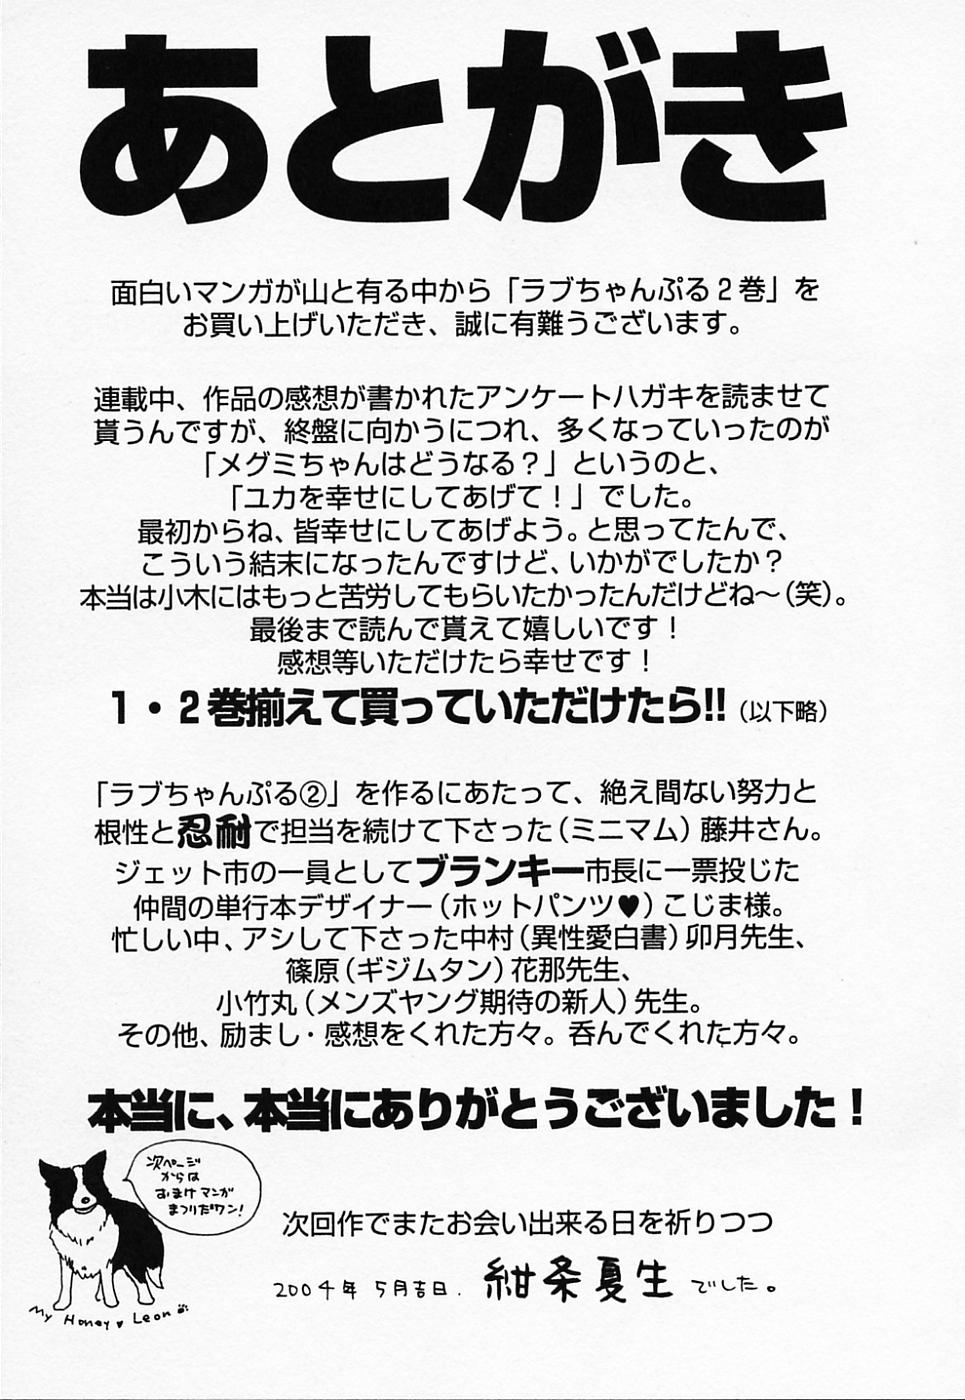 あとがき
面白いマンガが山と有る中から「ラブちゃんぷる２巻」を
お買い上げいただき、誠に有難うございます。
連載中、作品の感想が書かれたアンケートハガキを読ませて
貰うんですが、終盤に向かうにつれ、多くなっていったのが
「メグミちゃんはどうなる？」というのと、
「ユカを幸せにしてあげて！」でした。
最初からね、皆幸せにしてあげよう。と思ってたんで、
こういう結末になったんですけど、いかがでしたか？
本当は小木にはもっと苦労してもらいたかったんだけどね～（笑）。
最後まで読んで貰えて嬉しいです！
感想等いただけたら幸せです！
１・２巻揃えて買っていただけたら!!（以下略）
「ラブちゃんぷる②」を作るにあたって、絶え間ない努力と
根性と忍耐で担当を続けて下さった（ミニマム）藤井さん。
ジェット市の一員としてブランキー市長に一票投じた
仲間の単行本デザイナー（ホットパンツ♥）こじま様。
忙しい中、アシして下さった中村（異性愛白書）卯月先生、
篠原（ギジムタン）花那先生、
小竹丸（メンズヤング期待の新人）先生。
その他、励まし・感想をくれた方々。呑んでくれた方々。
本当に、本当にありがとうございました！
次ページ
からは
おまけマンガ
まつりだワン!
次回作でまたお会い出来る日を祈りつつ
2004年 5月吉日. 紺条夏生 でした。
My Honey ♥ Leon